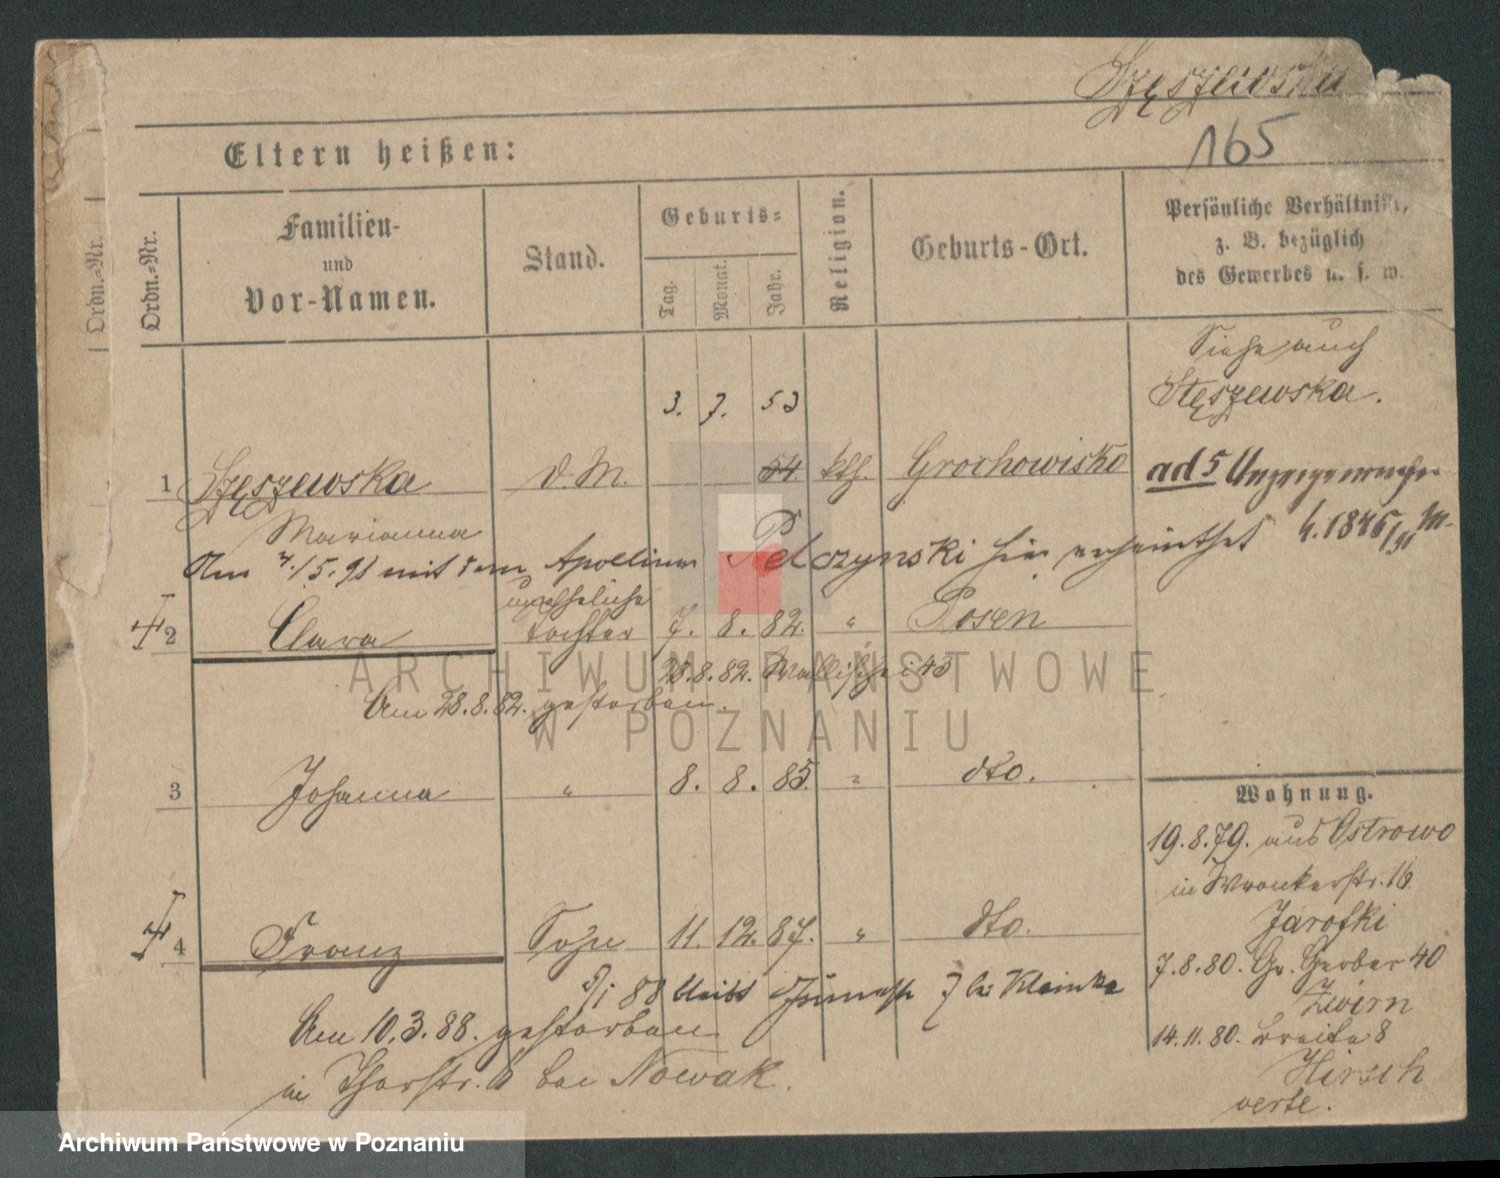 Szęszewska
165
Eltern heißen:
Ordn.-Nr.
Ordn.-Nr.
Familien-
und
Vor-Namen.
Stand.
Geburts-
Tag.
Monat.
Jahr.
Religion.
Geburts-Ort.
Persönliche Verhältnisse,
z. B. bezüglich
des Gewerbes u. s. w.
Siehe auch
Stęszewska.
3. 7. 53
1 Szęszewska D. M. 54. kth. Grochowisko
ad 5 Unzeigenwache
Marianna
4.1846/91 M.
Am 4/5.91 mit dem Apollinar Pelczynski hier verheirathet
uneheliche
2 Clara Tochter 7. 8. 82. " Posen
28.8.82. Wallischei 43
Am 28.8.82. gestorben.
3 Johanna " 8. 8. 85. " dto.
4 Franz Sohn 11. 12. 87. " dto.
88 bleibt 7 bei Klemke
Am 10.3.88. gestorben
in Thorstr. 6 bei Nowak.
Wohnung.
19.8.79. aus Ostrowo
in Wronkerstr. 16
Jarotki
7.8.80. Gr. Gerber 40
Zwirn
14.11.80. Breite 8
Hirsch
verte.
ARCHIWUM PAŃSTWOWE
W POZNANIU
Archiwum Państwowe w Poznaniu